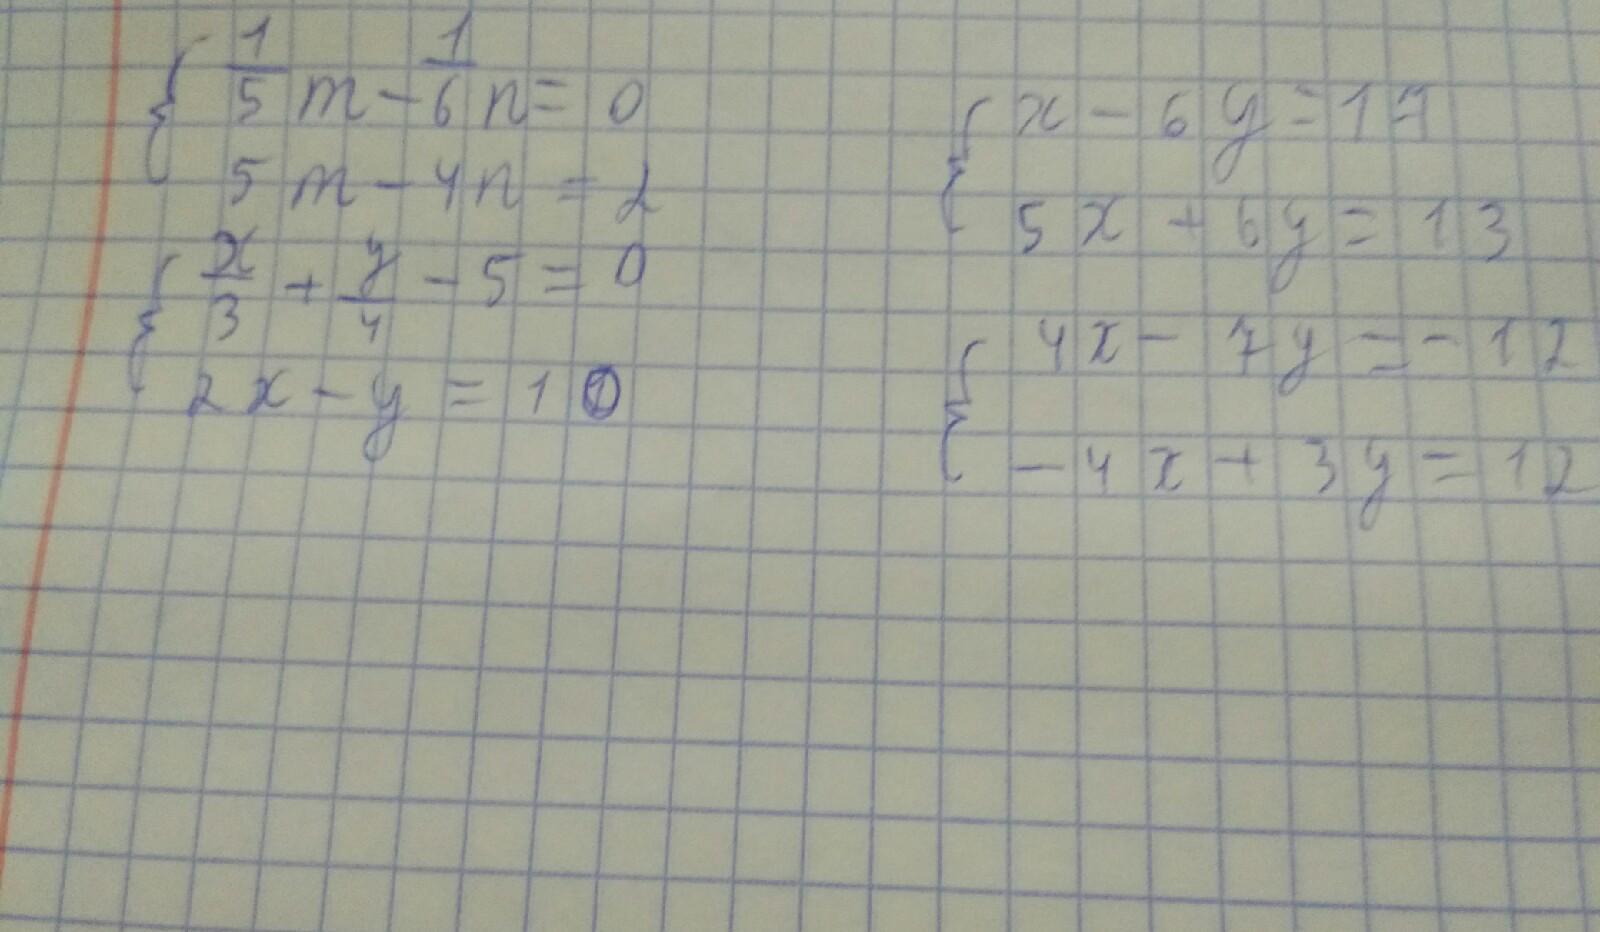 1/5 m - 1/6 n = 0
5m - 4n = 2
x/3 + y/4 - 5 = 0
2x - y = 10
x - 6y = 17
5x + 6y = 13
4x - 7y = -12
-4x + 3y = 12